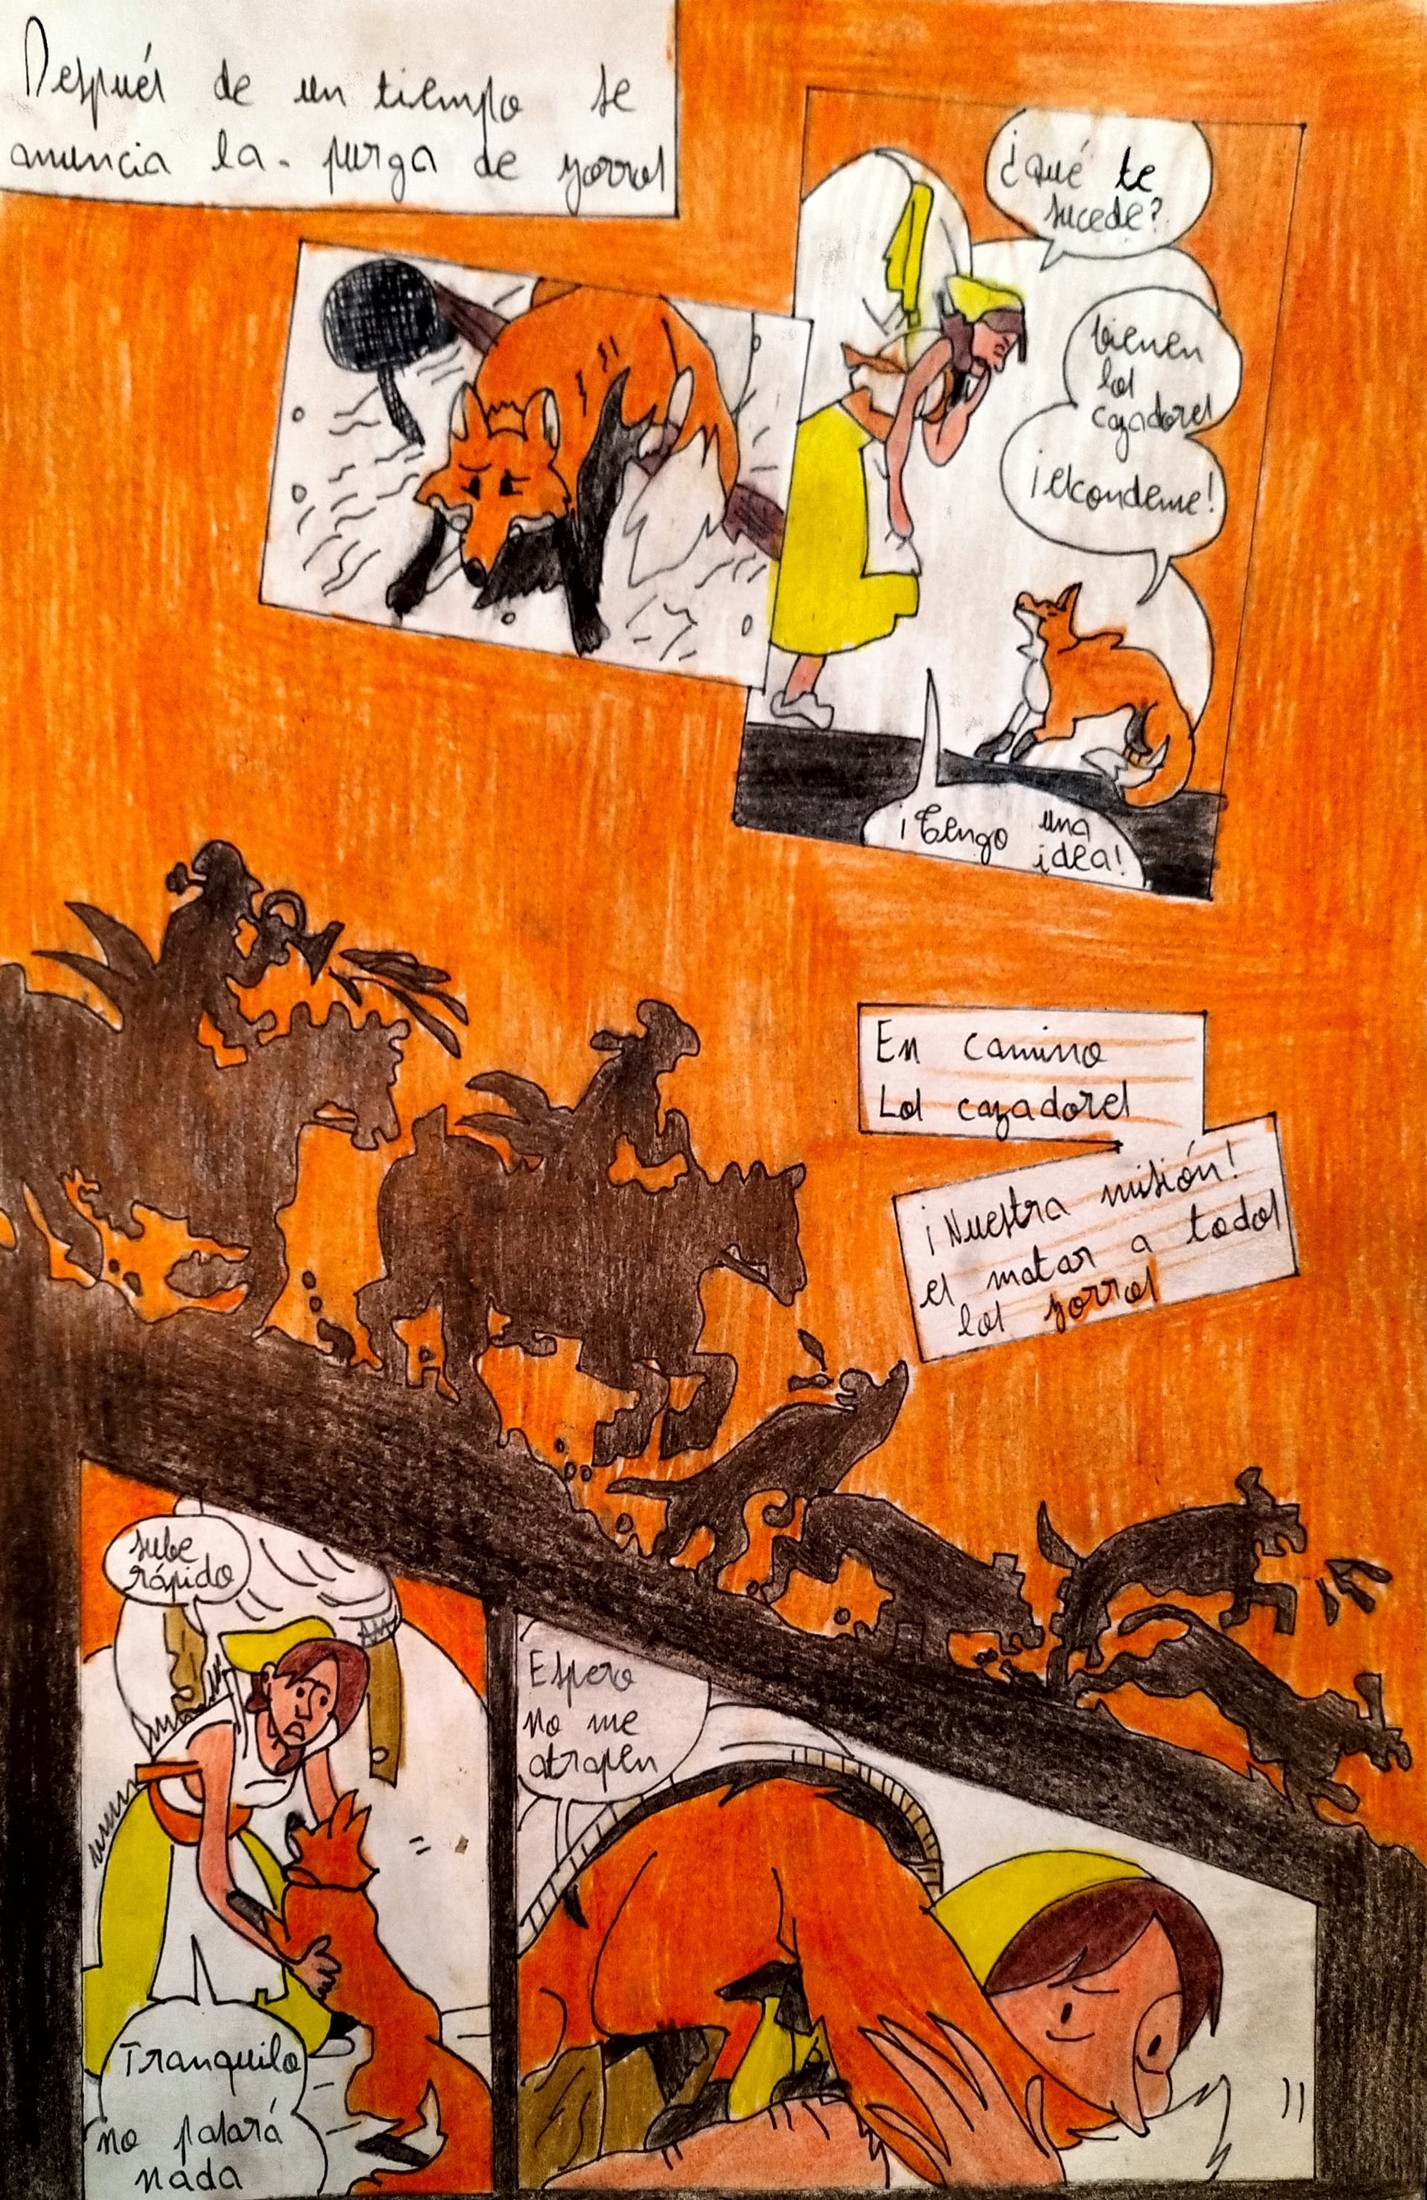 Después de un tiempo se
anuncia la. purga de zorros
¿qué te
sucede?
bienen
los
cazadores
¡escondeme!
¡Tengo una
idea!
En camino
Los cazadores
¡Nuestra misión!
es matar a todos
los zorros
sube
rápido
Tranquilo
no pasará
nada
Espero
no me
atrapen